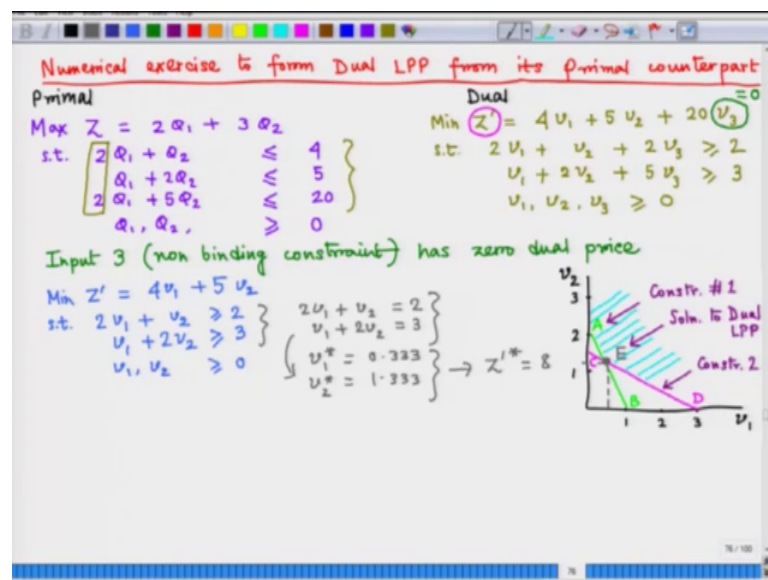 Numerical exercise to form Dual LPP from its Primal counterpart
Primal
Max Z = 2 Q₁ + 3 Q₂
s.t. 2 Q₁ + Q₂ ≤ 4
Q₁ + 2Q₂ ≤ 5
2 Q₁ + 5Q₂ ≤ 20
Q₁, Q₂, ≥ 0
Dual
= 0
Min Z' = 4 υ₁ + 5 υ₂ + 20 υ₃
s.t. 2 υ₁ + υ₂ + 2 υ₃ ≥ 2
υ₁ + 2 υ₂ + 5 υ₃ ≥ 3
υ₁, υ₂, υ₃ ≥ 0
Input 3 (non binding constraint) has zero dual price
Min Z' = 4υ₁ + 5 υ₂
s.t. 2 υ₁ + υ₂ ≥ 2
υ₁ + 2υ₂ ≥ 3
υ₁, υ₂ ≥ 0
2υ₁ + υ₂ = 2
υ₁ + 2υ₂ = 3
υ₁* = 0.333
υ₂* = 1.333
→ Z'* = 8
υ₂
3
2
1
A
C
E
B
D
1 2 3 υ₁
Constr. #1
Soln. to Dual
LPP
Constr. 2
76 / 100
76